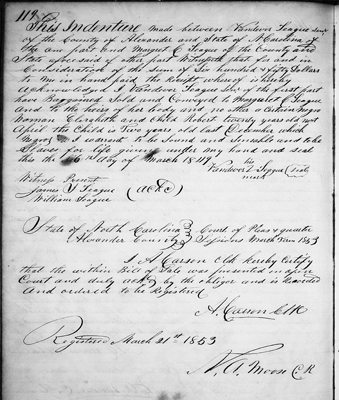 119
This Indenture made between Vandover Teague senr
of the County of Alexander and State of N Carolina of
the one part and Margret C Teague of the County and
State aforesaid of other part Witnesseth that for and in
Consideration of the sum of Six hundred & fifty Dollars
to him in hand paid the Receipt whereof is hereby
Acknowledged I Vandover Teague Snr of the first part
have Bargained Sold and Conveyed to Margaret C Teague
And to the heirs of her body and no other a certain Negro
Woman Elizabeth and Child Robert twenty years old next
April the Child is Two years old last December which
Negroes I warrant to be Sound and Sensible and to be
Slaves for life given under my hand and seal
this the 6th day of March 1849
his
Vandover Teague
mark
Witness Present
James T Teague
William Teague
State of North Carolina
Alexander County
Court of Pleas & quarter
Sessions March Term 1853
I A Carson Clk hereby Certify
that the within Bill of Sale was presented in open
Court and duly by the obligor and is
And ordered to be Registered
A. Carson Clk
Registered March 21st 1853
N. A. Moon C. R